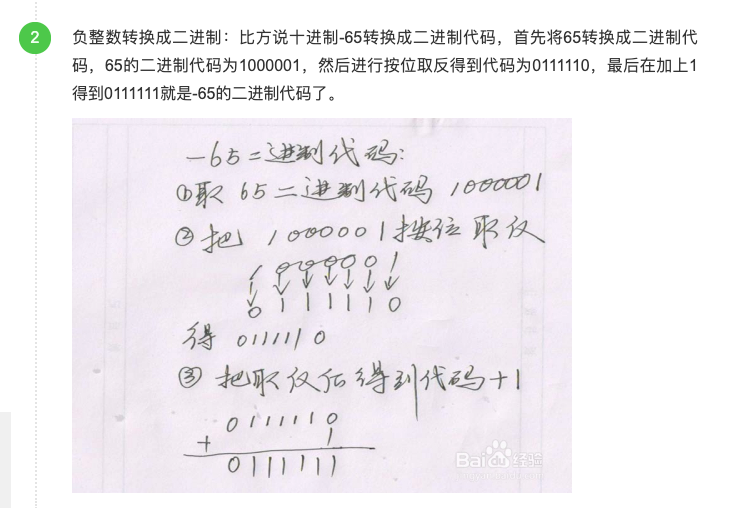 2
负整数转换成二进制：比方说十进制-65转换成二进制代码，首先将65转换成二进制代
码，65的二进制代码为1000001，然后进行按位取反得到代码为0111110，最后在加上1
得到0111111就是-65的二进制代码了。
-65二进制代码:
①取 65二进制代码 1000001
②把 1000001按位取仅
1000001
0111110
得 0111110
③ 把取仅后得到代码+1
0111110
+ 1
0111111
Bai du 经验